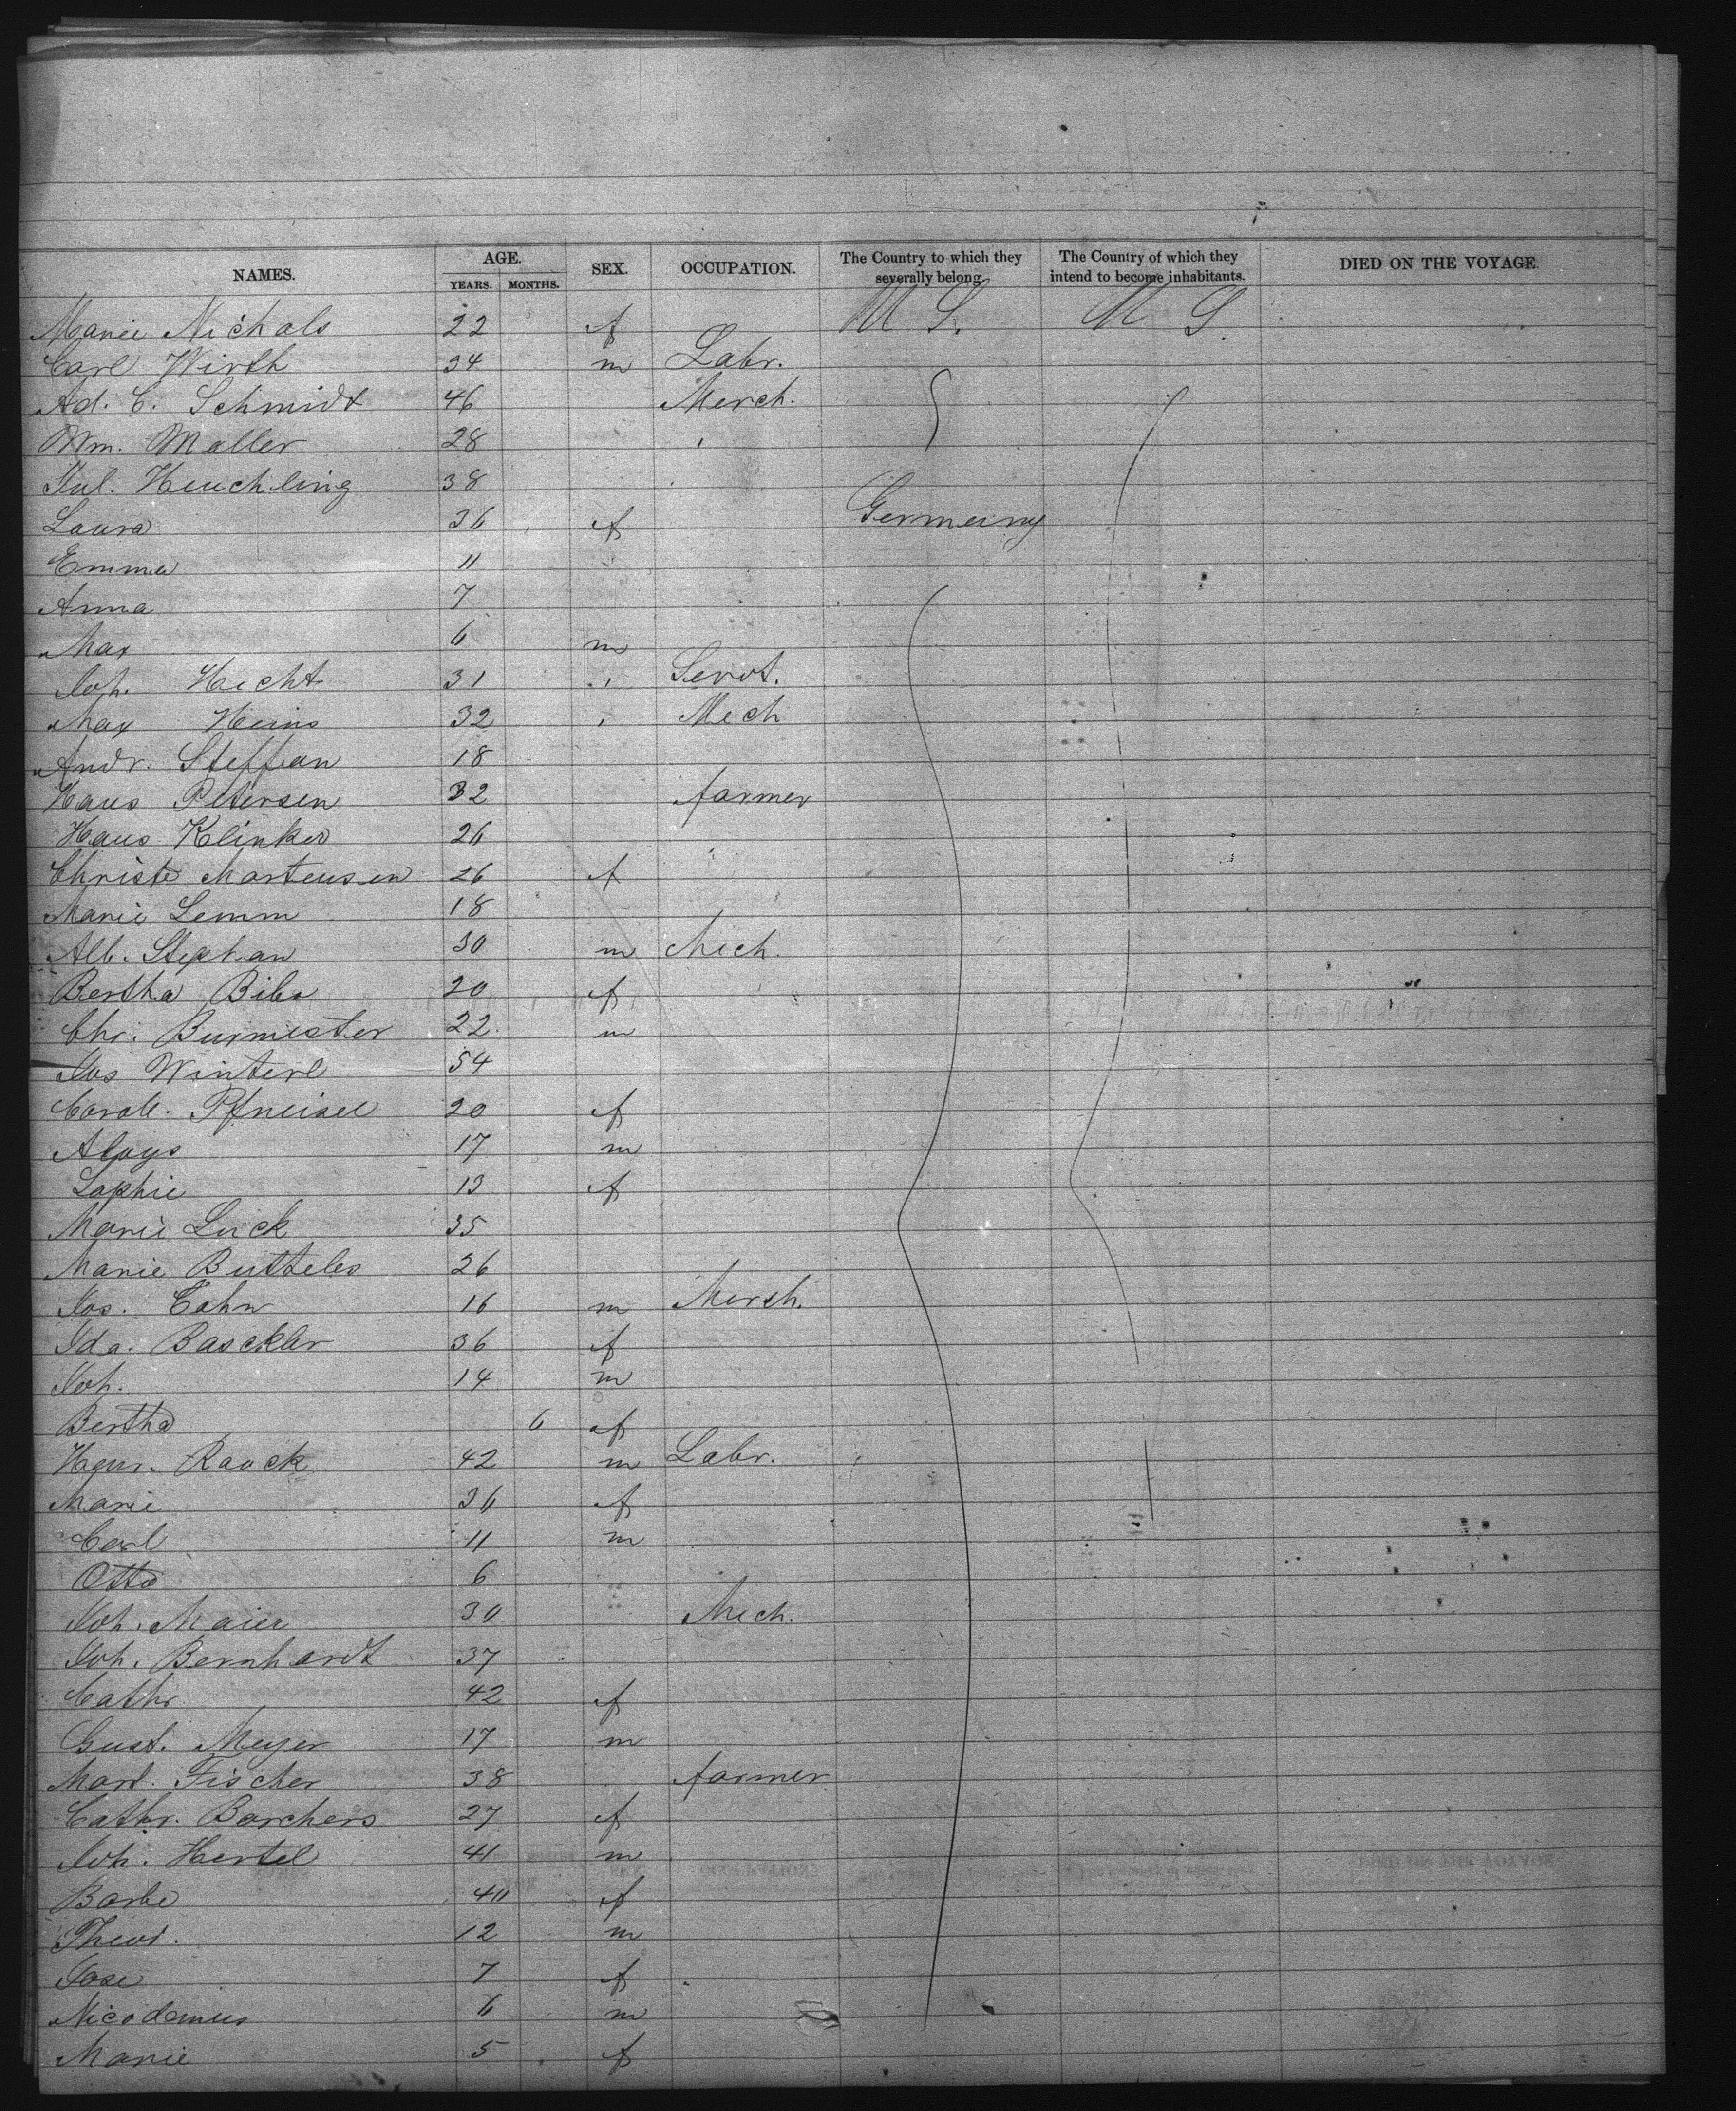 NAMES. AGE. SEX. OCCUPATION. The Country to which they severally belong. The Country of which they intend to become inhabitants. DIED ON THE VOYAGE.
YEARS. MONTHS.
Marie Nichols 22 f U S. U S.
Carl Wirth 34 m Labr.
Ad. C. Schmidt 46 Merch.
Wm. Moller 28 "
Jul. Heuchling 38
Laura 36 f Germany
Emma 11
Anna 7
Max 6 m
Joh. Hecht 31 " Servt.
Max Heins 32 " Mech
Andr. Steffan 18
Hans Petersen 32 farmer
Hans Klinker 26
Christe Martensen 26 f
Marie Lemm 18
Alb. Stephan 30 m Mech.
Bertha Bibo 20 f
Chr. Burmester 22 m
Jos Winterl 54
Carol. Pfneisel 20 f
Aloys 17 m
Sophie 13 f
Marie Luck 35
Marie Butteles 26
Jos. Cohn 16 m Merch.
Ida. Basckler 36 f
Joh. 14 m
Bertha 6 f
Raock 42 m Labr.
Marie 36 f
Carl 11 m
Otto 6
Joh. Maier 30 Mech.
Joh. Bernhardt 37
Cathr. 42 f
Gust. Meyer 17 m
Mart. Fischer 38 farmer
Cathr. Borchers 27 f
Joh. Hertel 41 m
Barbe 40 f
Theod. 12 m
Jose 7 f
Nicodemus 6 m
Marie 5 f